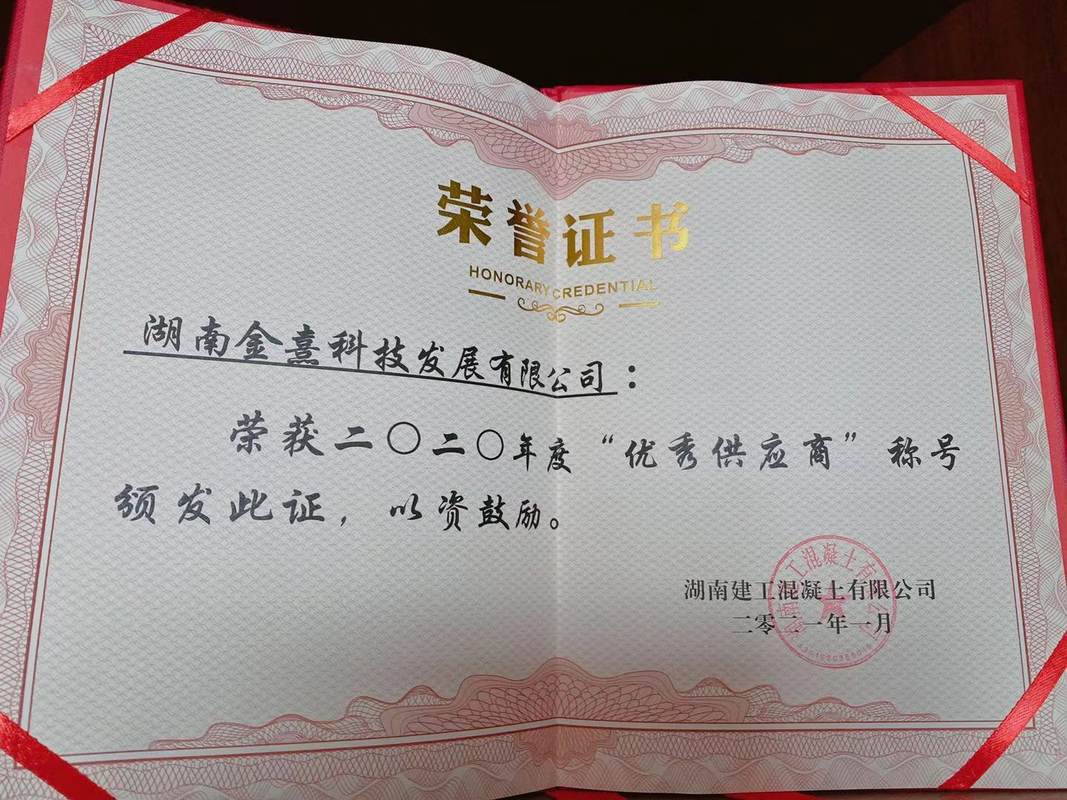 荣誉证书
HONORARY CREDENTIAL
湖南金熹科技发展有限公司：
荣获二〇二〇年度“优秀供应商”称号
颁发此证，以资鼓励。
湖南建工混凝土有限公司
二零二一年一月